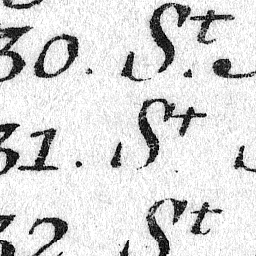 30. St.
31. St
32 St